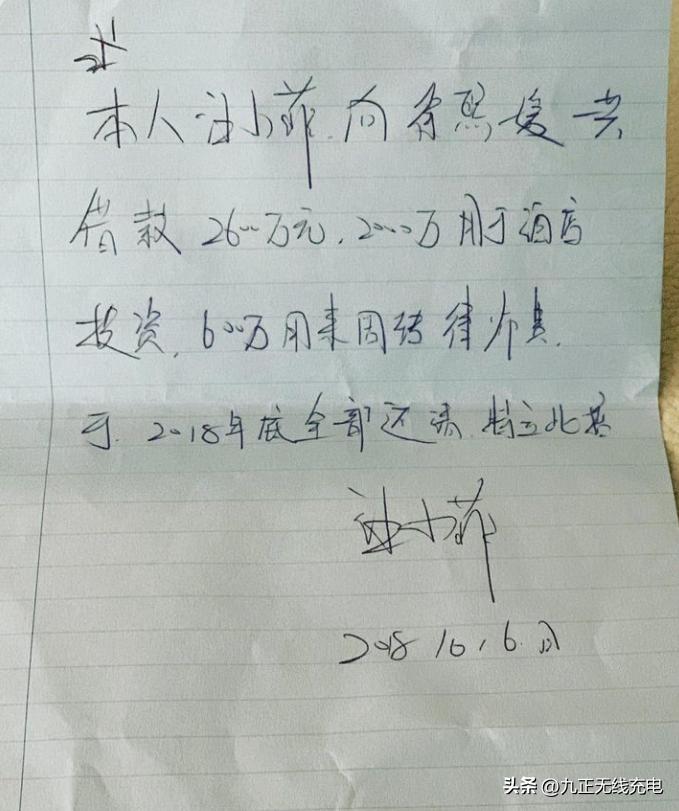 本人汪小菲向徐熙媛共
借款2600万元,2000万用于酒店
投资,600万用来周转律师费.
于.2018年底全部还清.特立此据
汪小菲
2018 10,6.
头条 @九正无线充电